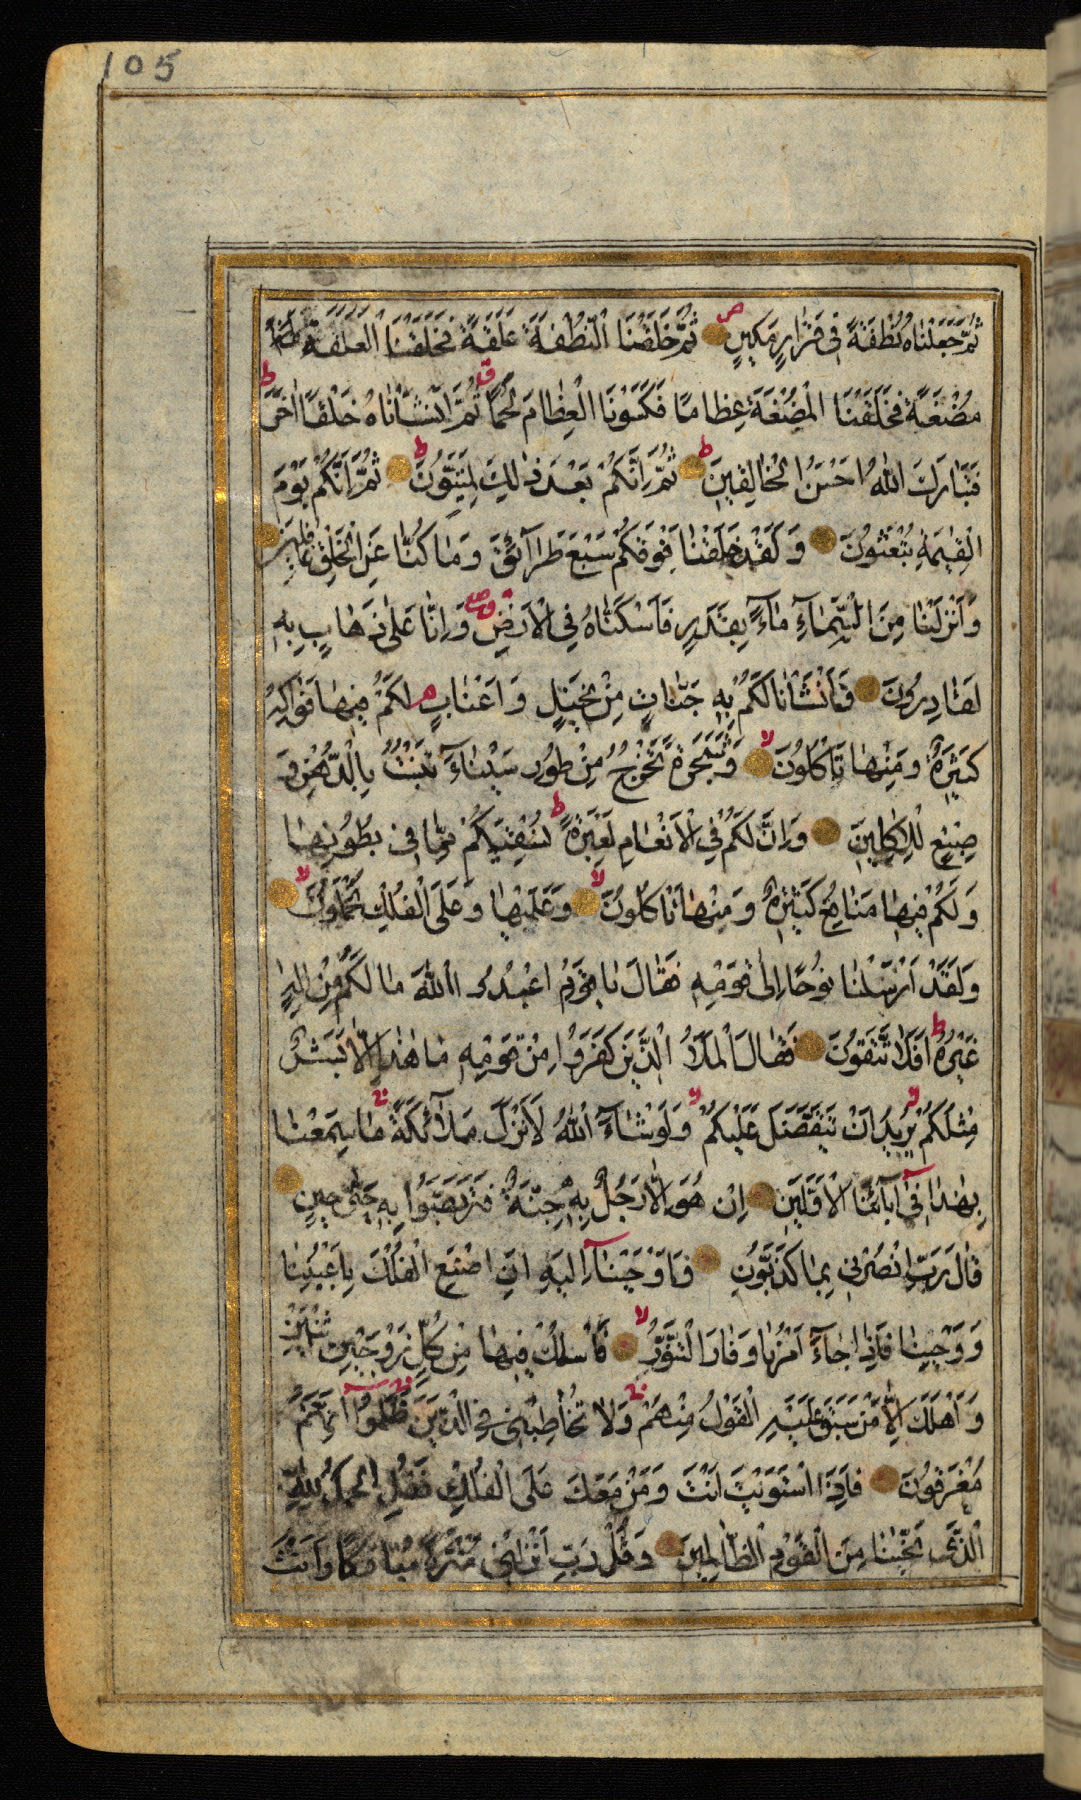 105
ثُمَّ جَعَلْنَاهُ نُطْفَةً فِی قَرَارٍ مَكِینٍ ص ثُمَّ خَلَقْنَا النُّطْفَةَ عَلَقَةً فَخَلَقْنَا الْعَلَقَةَ
مُضْغَةً فَخَلَقْنَا الْمُضْغَةَ عِظَامًا فَكَسَوْنَا الْعِظَامَ لَحْمًا ق ثُمَّ اَنْشَاْنَاهُ خَلْقًا اٰخَرَ ط
فَتَبَارَكَ اللّٰهُ اَحْسَنُ الْخَالِقِینَ ط ثُمَّ اِنَّكُمْ بَعْدَ ذٰلِكَ لَمَیِّتُونَ ط ثُمَّ اِنَّكُمْ یَوْمَ
الْقِیٰمَةِ تُبْعَثُونَ وَ لَقَدْ خَلَقْنَا فَوْقَكُمْ سَبْعَ طَرَآئِقَ وَمَا كُنَّا عَنِ الْخَلْقِ غَافِلِینَ
وَاَنْزَلْنَا مِنَ السَّمَآءِ مَآءً بِقَدَرٍ فَاَسْكَنَّاهُ فِی الْاَرْضِ وَاِنَّا عَلٰی ذَهَابٍ بِهٖ
لَقَادِرُونَ فَاَنْشَاْنَا لَكُمْ بِهٖ جَنَّاتٍ مِنْ نَخِیلٍ وَ اَعْنَابٍ م لَكُمْ فِیهَا فَوَاكِهُ
كَثِیرَةٌ وَ مِنْهَا تَاْكُلُونَ لا وَ شَجَرَةً تَخْرُجُ مِنْ طُورِ سَیْنَآءَ تَنْبُتُ بِالدُّهْنِ وَ
صِبْغٍ لِلْاٰكِلِینَ وَ اِنَّ لَكُمْ فِی الْاَنْعَامِ لَعِبْرَةً ط نُسْقِیكُمْ مِمَّا فِی بُطُونِهَا
وَ لَكُمْ فِیهَا مَنَافِعُ كَثِیرَةٌ وَ مِنْهَا تَاْكُلُونَ لا وَ عَلَیْهَا وَ عَلَی الْفُلْكِ تُحْمَلُونَ لا
وَ لَقَدْ اَرْسَلْنَا نُوحًا اِلٰی قَوْمِهٖ فَقَالَ یَا قَوْمِ اعْبُدُوا اللّٰهَ مَا لَكُمْ مِنْ اِلٰهٍ
غَیْرُهُ ط اَفَلَا تَتَّقُونَ فَقَالَ الْمَلَاُ الَّذِینَ كَفَرُوا مِنْ قَوْمِهٖ مَا هٰذَا اِلَّا بَشَرٌ
مِثْلُكُمْ لا یُرِیدُ اَنْ یَتَفَضَّلَ عَلَیْكُمْ وَ لَوْ شَآءَ اللّٰهُ لَاَنْزَلَ مَلَآئِكَةً مَا سَمِعْنَا
بِهٰذَا فِیٓ اٰبَآئِنَا الْاَوَّلِینَ اِنْ هُوَ اِلَّا رَجُلٌ بِهٖ جِنَّةٌ فَتَرَبَّصُوا بِهٖ حَتّٰی حِینٍ
قَالَ رَبِّ انْصُرْنِی بِمَا كَذَّبُونِ فَاَوْحَیْنَآ اِلَیْهِ اَنِ اصْنَعِ الْفُلْكَ بِاَعْیُنِنَا
وَ وَحْیِنَا فَاِذَا جَآءَ اَمْرُنَا وَ فَارَ التَّنُّورُ لا فَاسْلُكْ فِیهَا مِنْ كُلٍّ زَوْجَیْنِ اثْنَیْنِ
وَ اَهْلَكَ اِلَّا مَنْ سَبَقَ عَلَیْهِ الْقَوْلُ مِنْهُمْ وَلَا تُخَاطِبْنِی فِی الَّذِینَ ظَلَمُوا اِنَّهُمْ
مُغْرَقُونَ فَاِذَا اسْتَوَیْتَ اَنْتَ وَ مَنْ مَعَكَ عَلَی الْفُلْكِ فَقُلِ الْحَمْدُ لِلّٰهِ
الَّذِی نَجّٰینَا مِنَ الْقَوْمِ الظَّالِمِینَ وَ قُلْ رَبِّ اَنْزِلْنِی مُنْزَلًا مُبَارَكًا وَ اَنْتَ